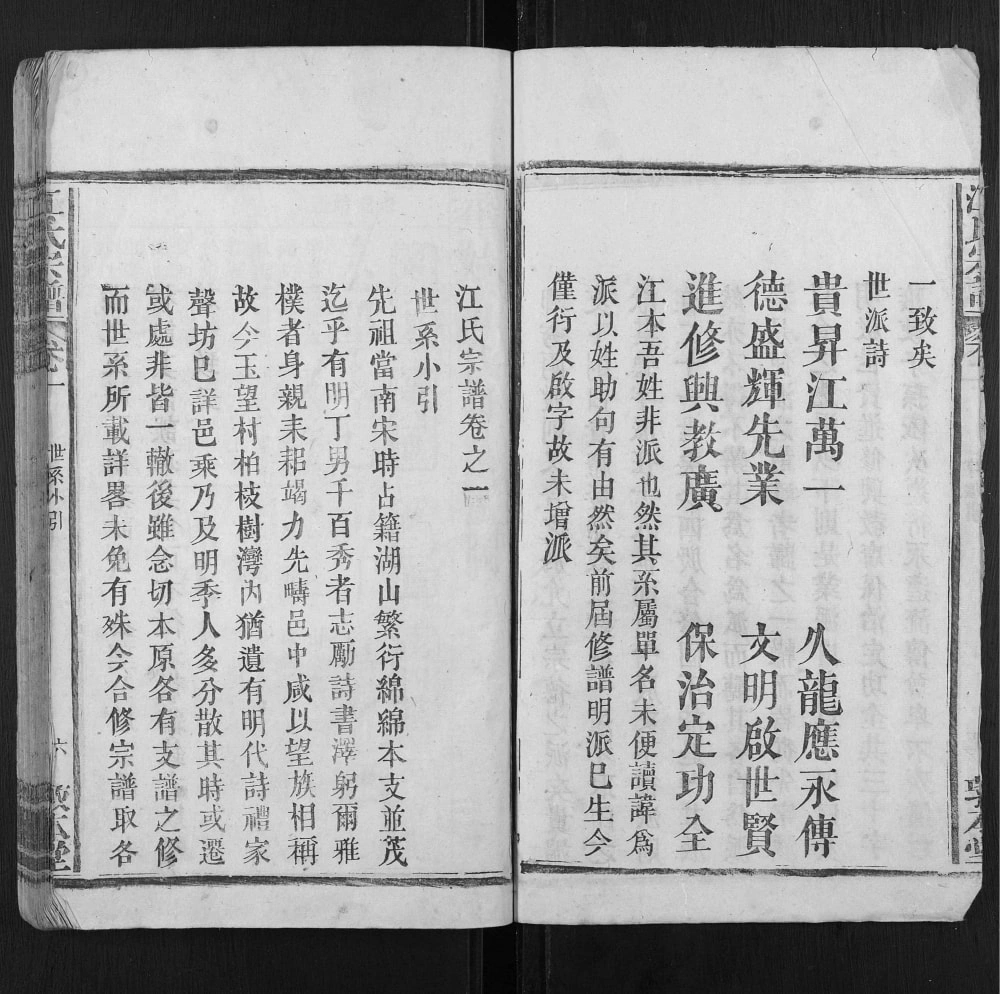 一致矣
世派詩
貴昇江萬一　久龍應永傳
德盛輝先業　文明啟世賢
進修興教廣　保治定功全
江本吾姓非派也然其系屬單名未便讀諱爲
派以姓助句有由然矣前屆修譜明派已生今
僅行及啟字故未增派
江氏宗譜卷之一
世系小引
先祖當南宋時占籍湖山繁衍綿綿本支並茂
迄乎有明丁男千百秀者志勵詩書澤躬爾雅
樸者身親耒耜竭力先疇邑中咸以望族相稱
故今玉望村柏枝樹灣內猶遺有明代詩禮家
聲坊已詳邑乘乃及明季人多分散其時或遷
或處非皆一轍後雖念切本原各有支譜之修
而世系所載詳畧未免有殊今合修宗譜取各
江氏宗譜　卷一　世系小引　六　敦本堂